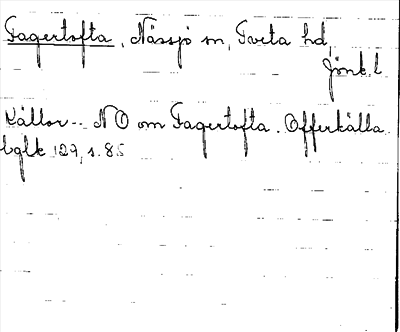 Fagertofta, Nässjö sn, Tveta hd,
Jönk. l.
Källor.- NO om Fagertofta. Offerkälla.
bglk 129, s. 85